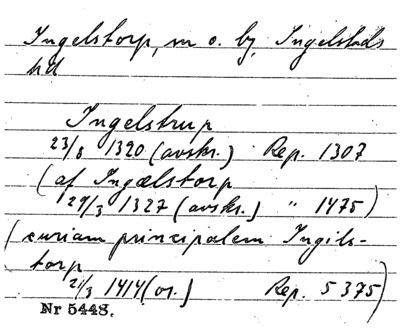 Ingelstorp, m o. by, Ingelstads
hd
Ingelstrup
23/8 1320 (avskr.) Rep. 1307
(af Ingælstorp
29/3 1327 (avskr.) " 1475)
(curiam principalem Ingils-
torp
21/3 1414 (or.) Rep. 5375)
Nr 5448.